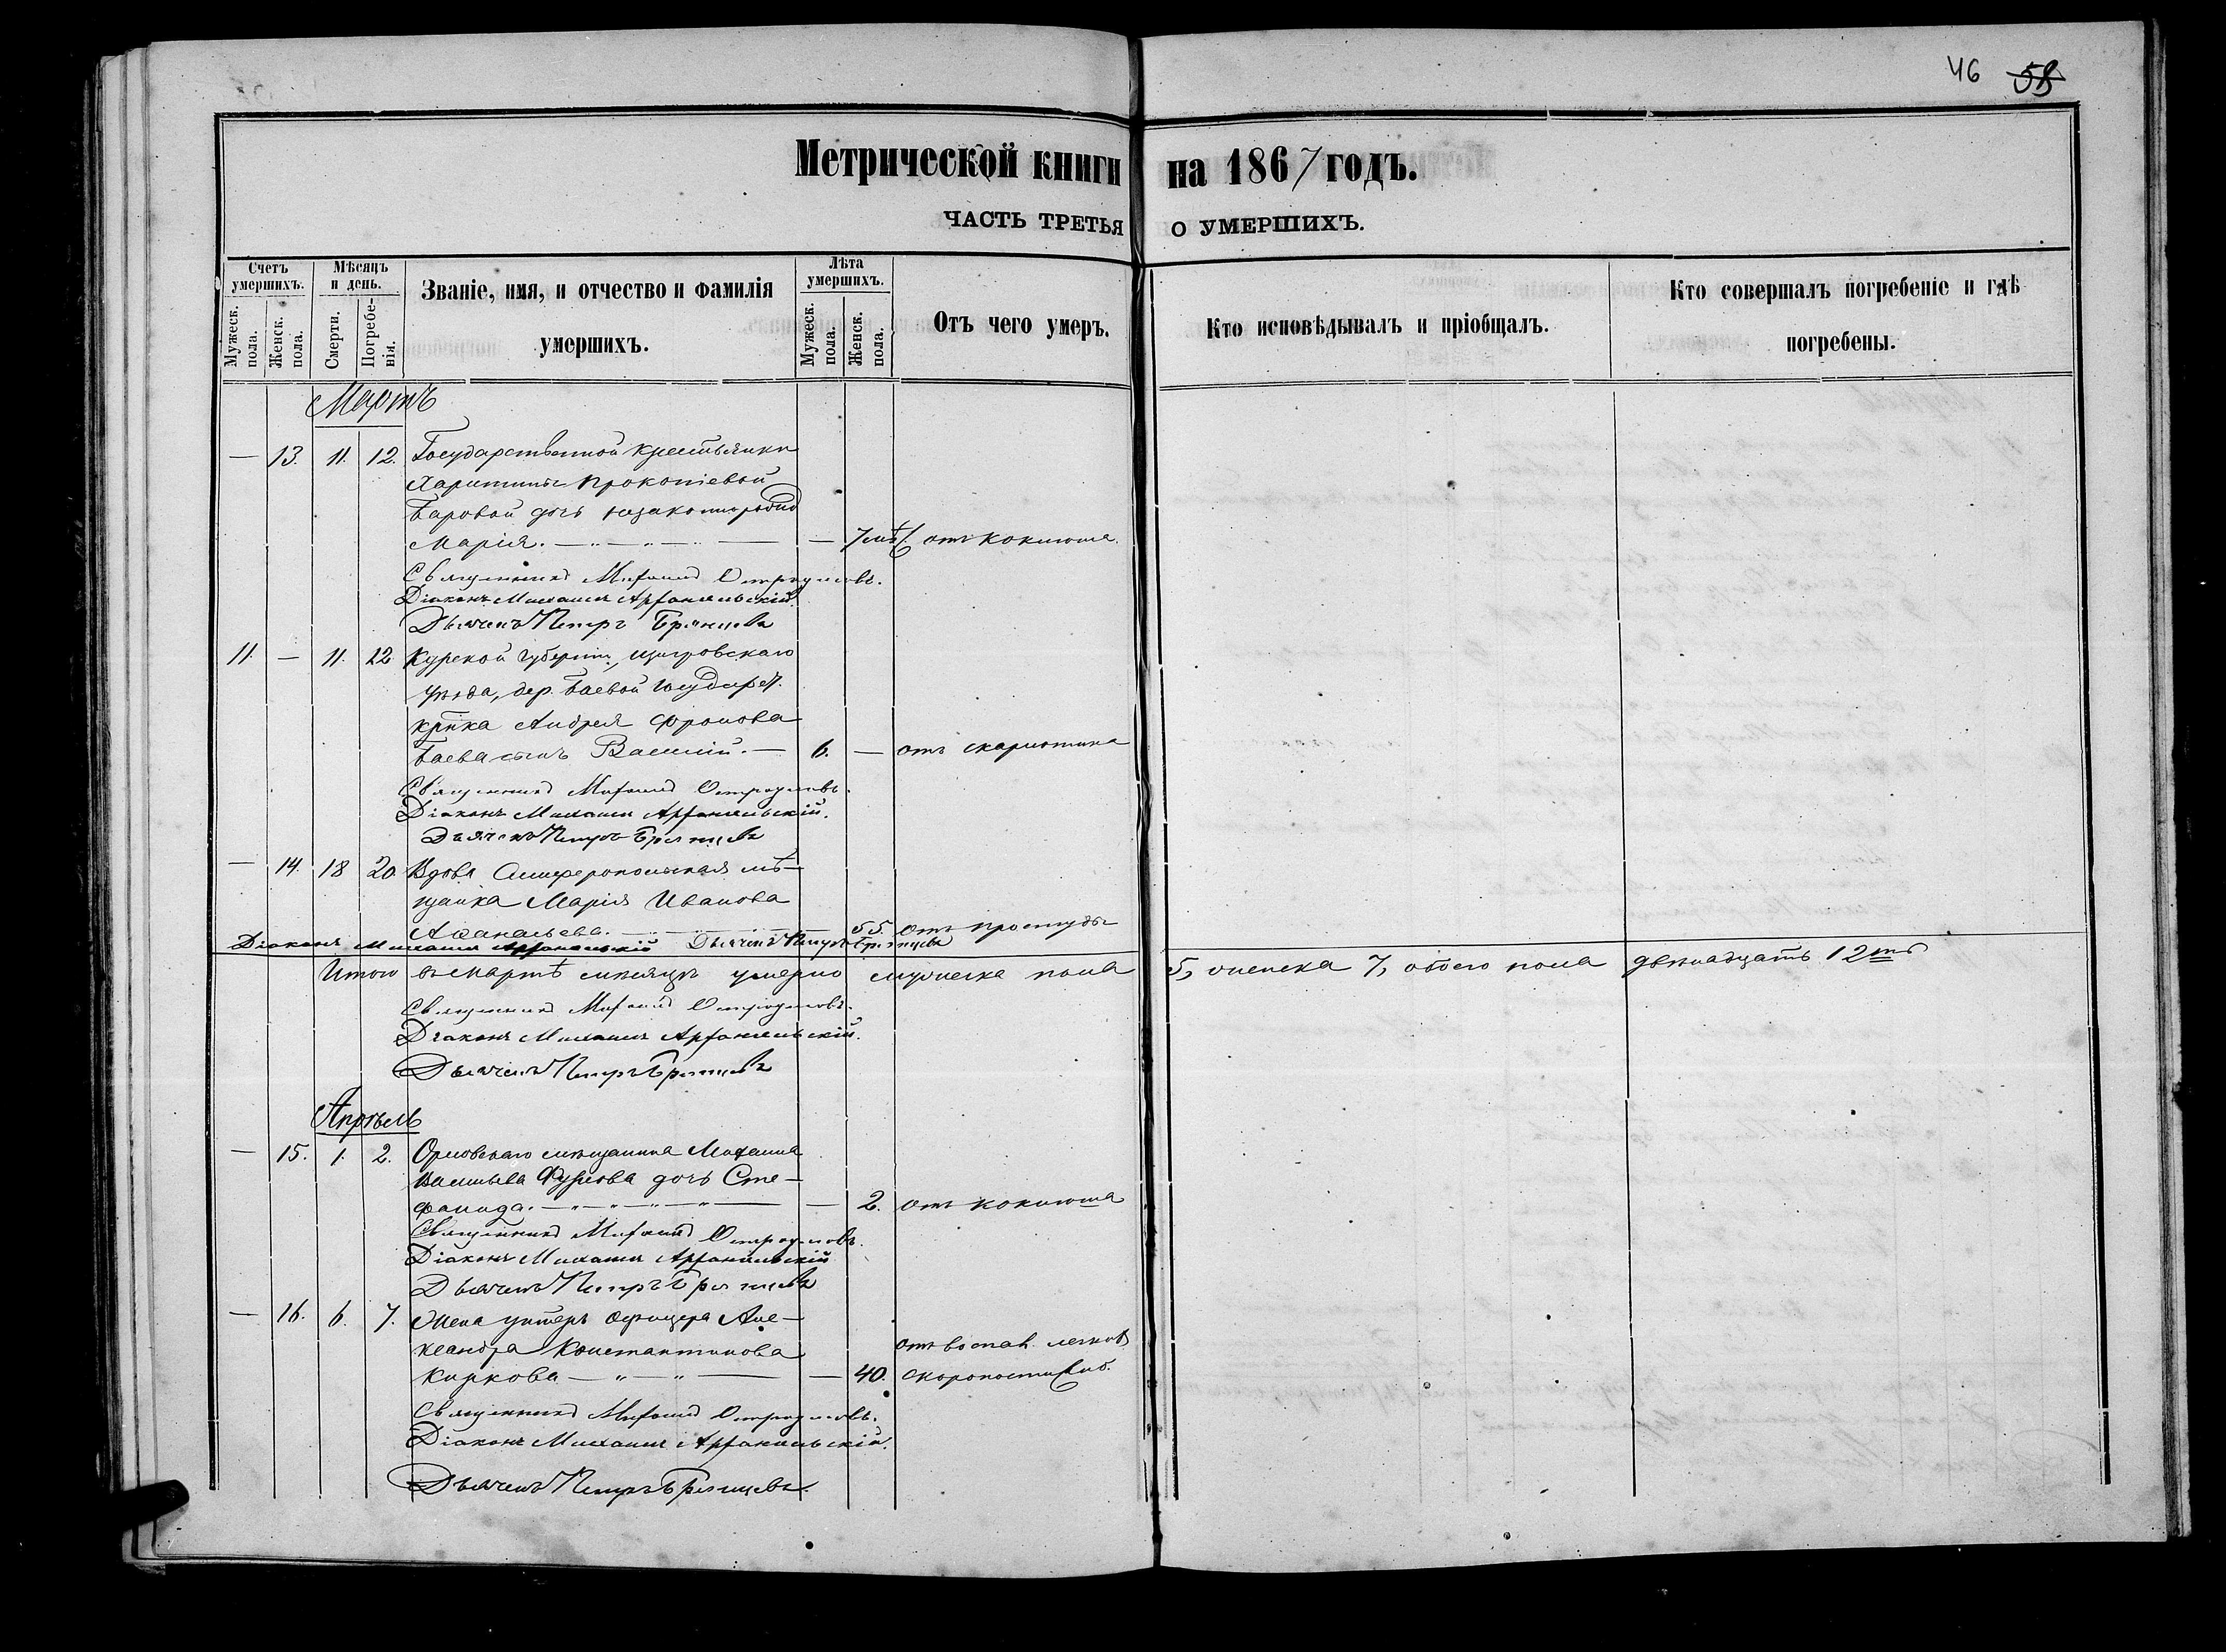 46 58
Метрической книги на 1867 годъ.
ЧАСТЬ ТРЕТЬЯ О УМЕРШИХЪ.
Счетъ умершихъ.
Мужеск. пола.
Женск. пола.
Мѣсяцъ и день.
Смерти.
Погребе-нія.
Званіе, имя, и отчество и фамилія
умершихъ.
Лѣта умершихъ.
Мужеск. пола.
Женск. пола.
Отъ чего умеръ.
Кто исповѣдывалъ и пріобщалъ.
Кто совершалъ погребеніе и гдѣ
погребены.
Мартъ
— 13. 11. 12. Государственной крестьянки
Харитины Прокопіевой
Баровой дочь незаконнорожд
Марія. — 7 отъ коклюша.
Священникъ Михаилъ
Діаконъ Михаилъ Архангельскій.
Дьячекъ Петръ Брянцевъ
11. — 11. 12. Курской губерніи, щигровскаго
уѣзда, дер. Баевой государст.
крͭнка Андрея Фролова
Баева сынъ Василій. — 6. — отъ скарлотина
Священникъ Михаилъ
Діаконъ Михаилъ Архангельскій.
Дьячекъ Петръ Брянцевъ
— 14. 18 20. Вдова Симферопольская мѣ-
щанка Марія Иванова
Аѳанасьева. — 55. отъ простуды
Діаконъ Михаилъ Архангельскій Дьячекъ Петръ Брянцевъ
Итого въ мартѣ мѣсяцѣ умерло мужеска пола 5, женска 7, обоего пола двѣнадцать 12ть
Священникъ Михаилъ
Діаконъ Михаилъ Архангельскій.
Дьячекъ Петръ Брянцевъ
Апрѣль
— 15. 1. 2. Орловскаго мѣщанина Михаила
Васильева дочь Сте-
фанида. — 2. отъ коклюша
Священникъ Михаилъ
Діаконъ Михаилъ Архангельскій
Дьячекъ Петръ Брянцевъ
— 16. 6. 7. Жена унтеръ офицера Але-
ксандра Константинова
отъ воспал. легкихъ
Киркова — 40. скоропостижно.
Священникъ Михаилъ
Діаконъ Михаилъ Архангельскій.
Дьячекъ Петръ Брянцевъ.